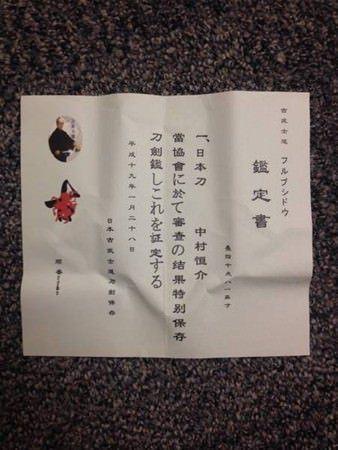 古武士道 フルブシドウ
鑑定書
長四十点八一五才
一、日本刀 中村恒介
當協會に於て審査の結果特別保存
刀剣鑑しこれを証定する
平成十九年一月二十八日
日本古武士道刀剣保存